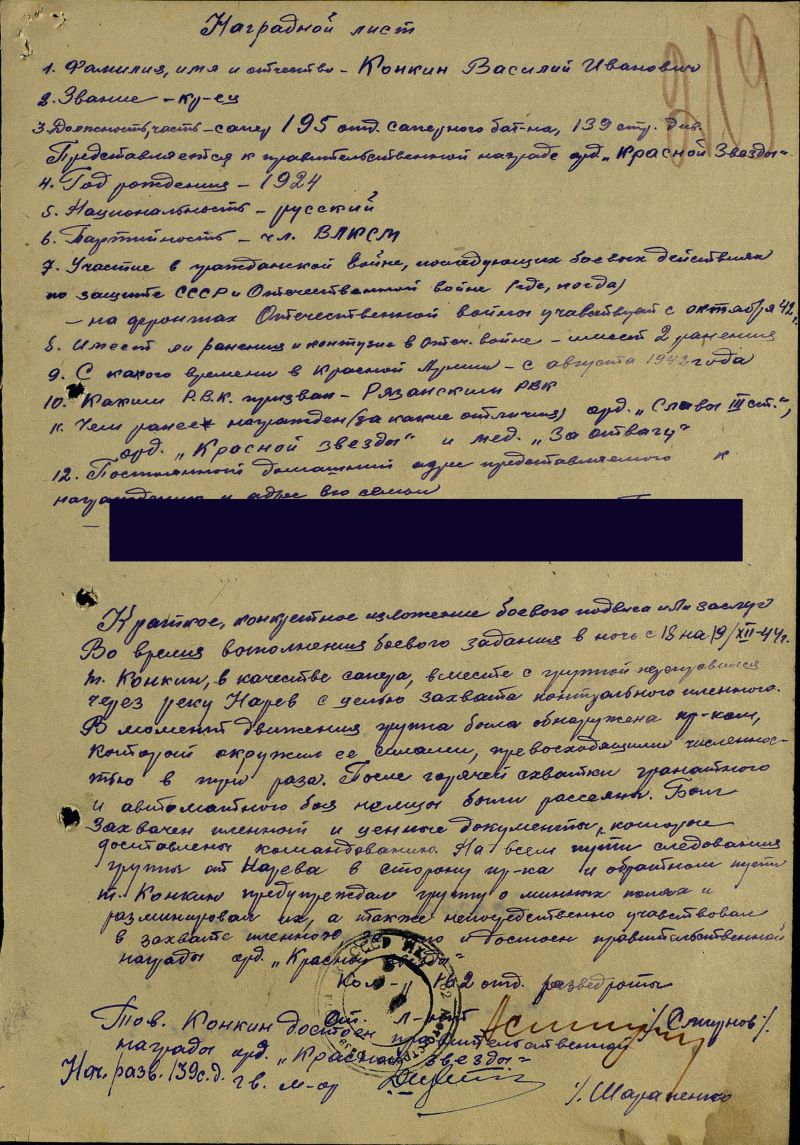 Наградной лист
319
1. Фамилия, имя и отчество – Конкин Василий Иванович
2. Звание – кр-ец
3. Должность, часть – сапер 195 отд. саперного бат-на, 139 стр. див.
Представляется к правительственной награде орд. „Красной Звезды"
4. Год рождения – 1924
5. Национальность – русский
6. Партийность – чл. ВЛКСМ
7. Участие в гражданской войне, последующих боевых действиях
по защите СССР и Отечественной войне (где, когда)
– на фронтах Отечественной войны учавствует с октября 42 г.
8. Имеет ли ранения и контузии в отеч. войне – имеет 2 ранения
9. С какого времени в Красной Армии – с августа 1942 года
10. Каким Р.В.К. призван – Рязанским РВК
11. Чем ранее награжден (за какие отличия) орд. „Славы III ст.",
орд. „Красной звезды" и мед. „За отвагу"
12. Постоянный домашний адрес представляемого к
награждению и адрес его семьи
Краткое, конкретное изложение боевого подвига или заслуг
Во время выполнения боевого задания в ночь с 18 на 19/XII-44 г.
т. Конкин, в качестве сапера, вместе с группой
через реку Нарев с целью захвата контрольного пленного.
В момент движения группа была обнаружена пр-ком,
который окружил ее силами, превосходящими численнос-
тью в три раза. После горячей схватки гранатного
и автоматного боя немцы были рассеяны. Был
захвачен пленный и ценные документы, которые
доставлены командованию. На всем пути следования
группы от Нарева в сторону пр-ка и обратном пути
т. Конкин предупреждал группу о минных полях и
разминировал их, а также непосредственно учавствовал
в захвате пленного и достоен правительственной
награды орд. „Красной Звезды"
Ком-р 162 отд. разведроты
ст. л-нт /Смирнов/.
Тов. Конкин достоен правительственной
награды орд. „Красной Звезды"
Нач. разв. 139 с.д. гв. м-ор
/. Шарапенко